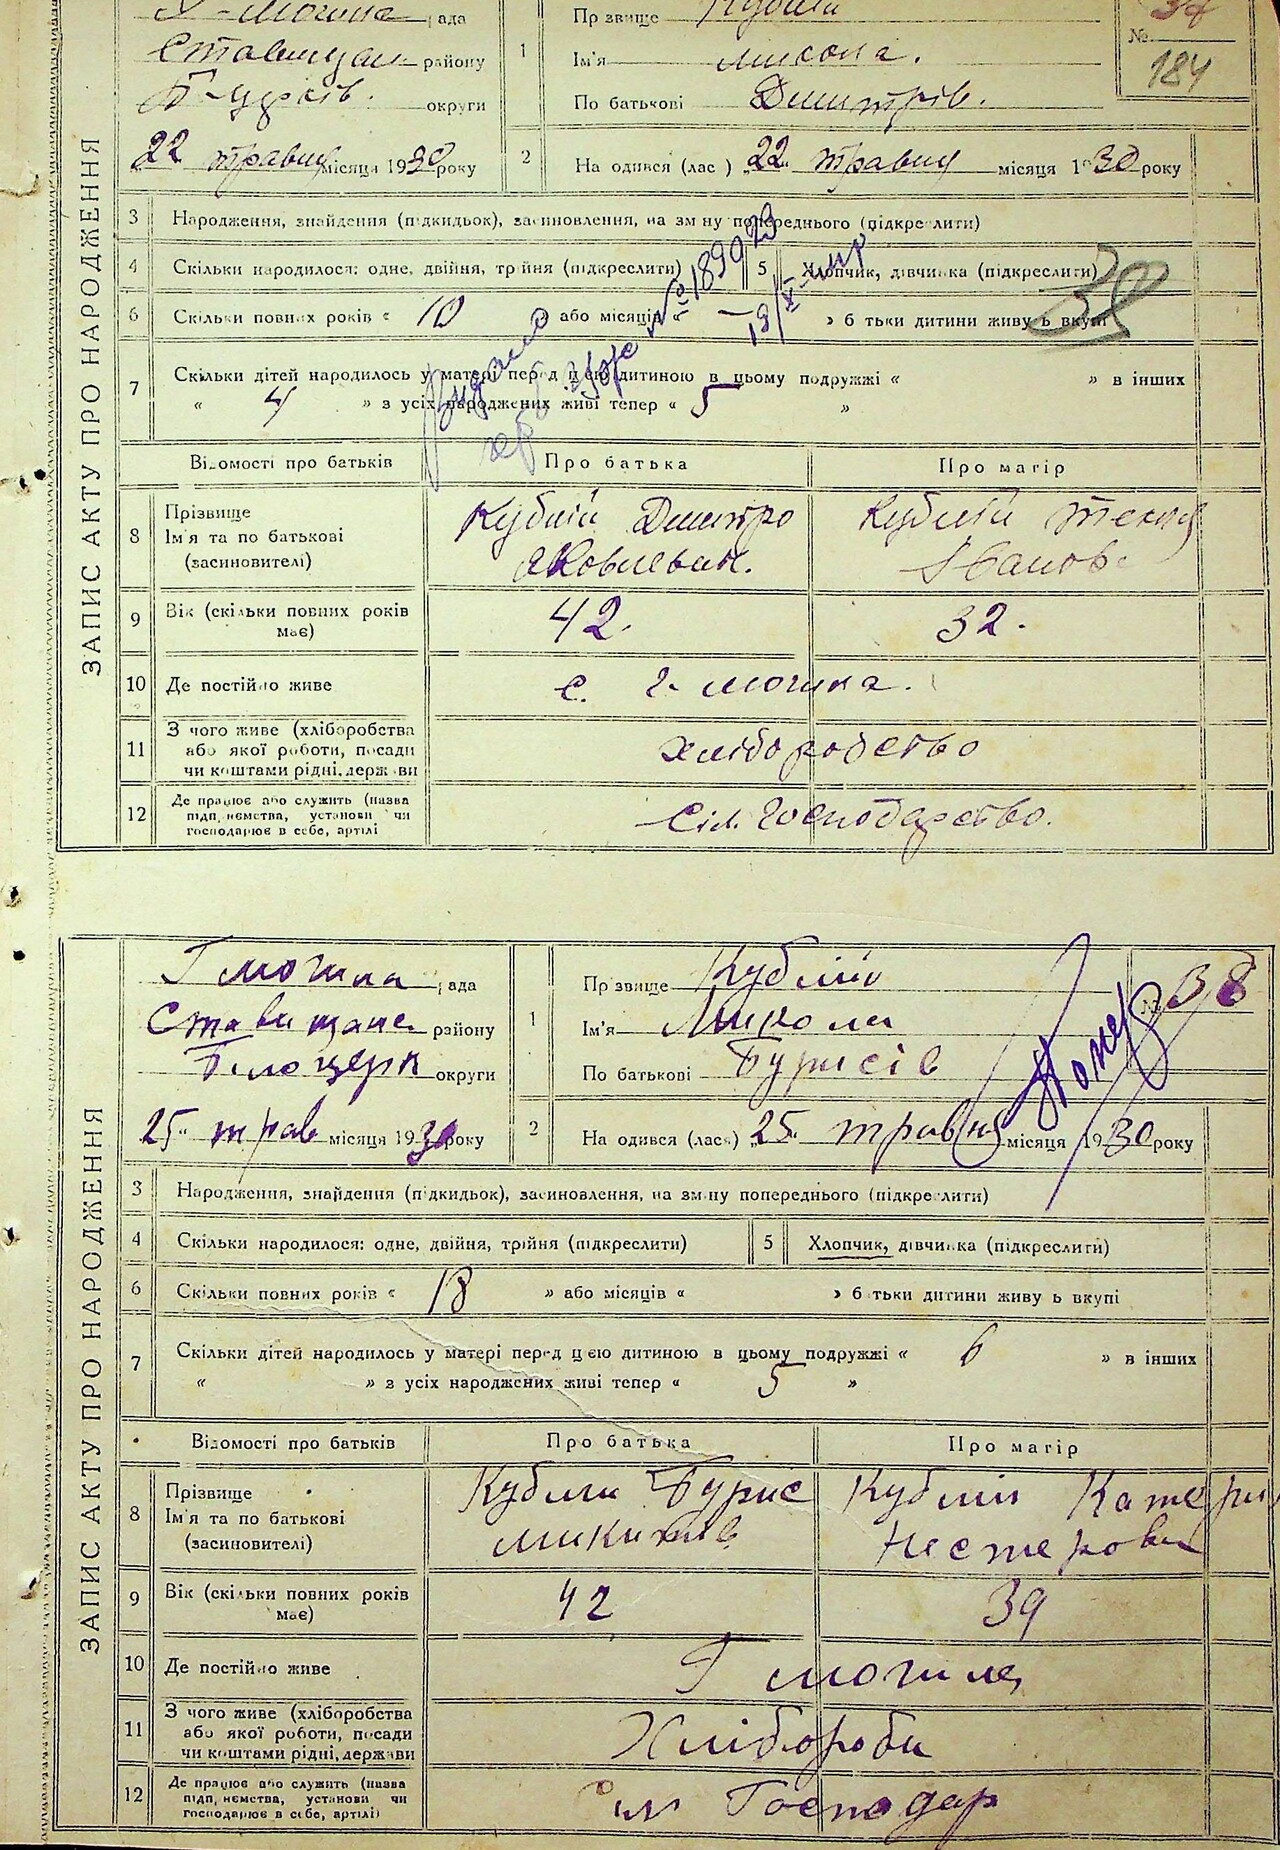 Г-Могила рада
Ставищан району
Б-Церків. округи
22 травня місяця 1930 року
1 Прізвище Кублій
Ім'я Микола.
По батькові Дмитрів.
№ 37
184
2 Народився (лась) „22„ травня місяця 1930 року
ЗАПИС АКТУ ПРО НАРОДЖЕННЯ
3 Народження, знайдення (підкидьок), засиновлення, на зміну попереднього (підкреслити)
4 Скільки народилося: одне, двійня, трійня (підкреслити)
5 Хлопчик, дівчинка (підкреслити)
38
6 Скільки повних років « 10 » або місяців « — » батьки дитини живуть вкупі
7 Скільки дітей народилось у матері перед цією дитиною в цьому подружжі « » в інших
« 4 » з усіх народжених живі тепер « 5 »
Відомості про батьків Про батька Про матір
8 Прізвище
Ім'я та по батькові
(засиновителі)
Кублій Дмитро
Яковлевич.
Кублій
Іванов.
9 Вік (скільки повних років
має)
42. 32.
10 Де постійно живе с. Г. Могила.
11 З чого живе (хліборобства
або якої роботи, посади
чи коштами рідні, держави
хліборобство
12 Де працює або служить (назва
підприємства, установи чи
господарює в себе, артілі
Сіл. Господарство.
Г Могила рада
Ставищане району
Білоцерк округи
25 трав місяця 1930 року
1 Прізвище Кублій
Ім'я Микола
По батькові Бурисів
№ 38
Помер
2 Народився (лась) „25„ травня місяця 1930 року
ЗАПИС АКТУ ПРО НАРОДЖЕННЯ
3 Народження, знайдення (підкидьок), засиновлення, на зміну попереднього (підкреслити)
4 Скільки народилося: одне, двійня, трійня (підкреслити)
5 Хлопчик, дівчинка (підкреслити)
6 Скільки повних років « 18 » або місяців « » батьки дитини живуть вкупі
7 Скільки дітей народилось у матері перед цією дитиною в цьому подружжі « 6 » в інших
« » з усіх народжених живі тепер « 5 »
Відомості про батьків Про батька Про матір
8 Прізвище
Ім'я та по батькові
(засиновителі)
Кублій Бурис
Микитив
Кублій Катери
Нестерови
9 Вік (скільки повних років
має)
42 39
10 Де постійно живе Г Могила
11 З чого живе (хліборобства
або якої роботи, посади
чи коштами рідні, держави
Хлібороби
12 Де працює або служить (назва
підприємства, установи чи
господарює в себе, артілі)
Сіл Господар